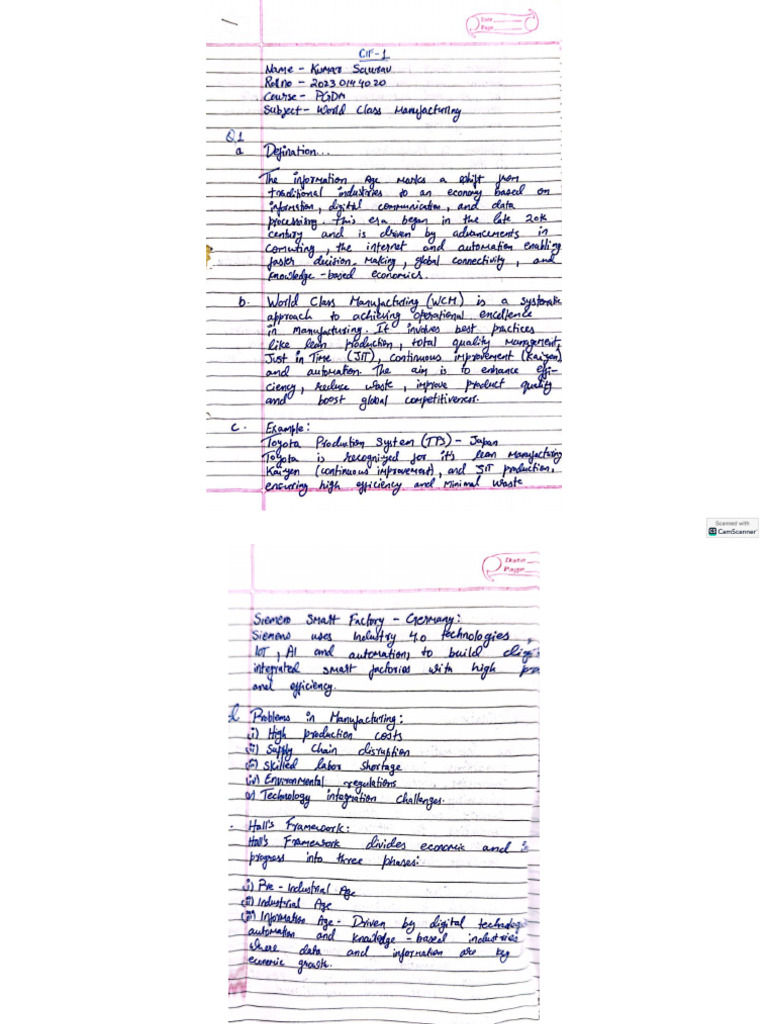 Date
Page
CIF-1
Name - Kumar Saurav
Roll no - 2023 014 40 20
Course - PGDM
Subject - World Class Manufacturing
Q1
a Defination...
The information Age marks a shift from
traditional industries to an economy based on
information, digital communication, and data
processing. This era began in the late 20th
century and is driven by advancements in
Comuting, the internet and automation enabling
faster decision-Making, global connectivity, and
Knowledge-based economics.
b. World Class Manufacturing (WCM) is a systematic
approach to achieving operational excellence
in manufacturing. It involves best practices
like lean production, total quality management,
Just in Time (JIT), continuous improvement (Kaizen)
and automation. The aim is to enhance effi-
ciency, reduce waste, improve product quality
and boost global competitiveness.
c. Example:
Toyota Production System (TPS) - Japan
Toyota is recognized for its lean Manufacturing
Kaizen (continuous improvement), and JIT production,
ensuring high efficiency and Minimal Waste
Scanned with
CS CamScanner
Date
Page
Siemens Smart Factory - Germany:
Siemens uses Industry 4.0 technologies,
IoT, AI and automation, to build
integrated smart factories with high
and efficiency.
d Problems in Manufacturing:
i) High production costs
ii) Supply Chain disruption
iii) Skilled labor shortage
iv) Environmental regulations
v) Technology integration Challenges.
Hall's Framework:
Hall's Framework divides economic and
progress into three phases:
i) Pre-Industrial Age
ii) Industrial Age
iii) Information Age - Driven by digital
automation and knowledge-based industries
where data and information are key
economic growth.